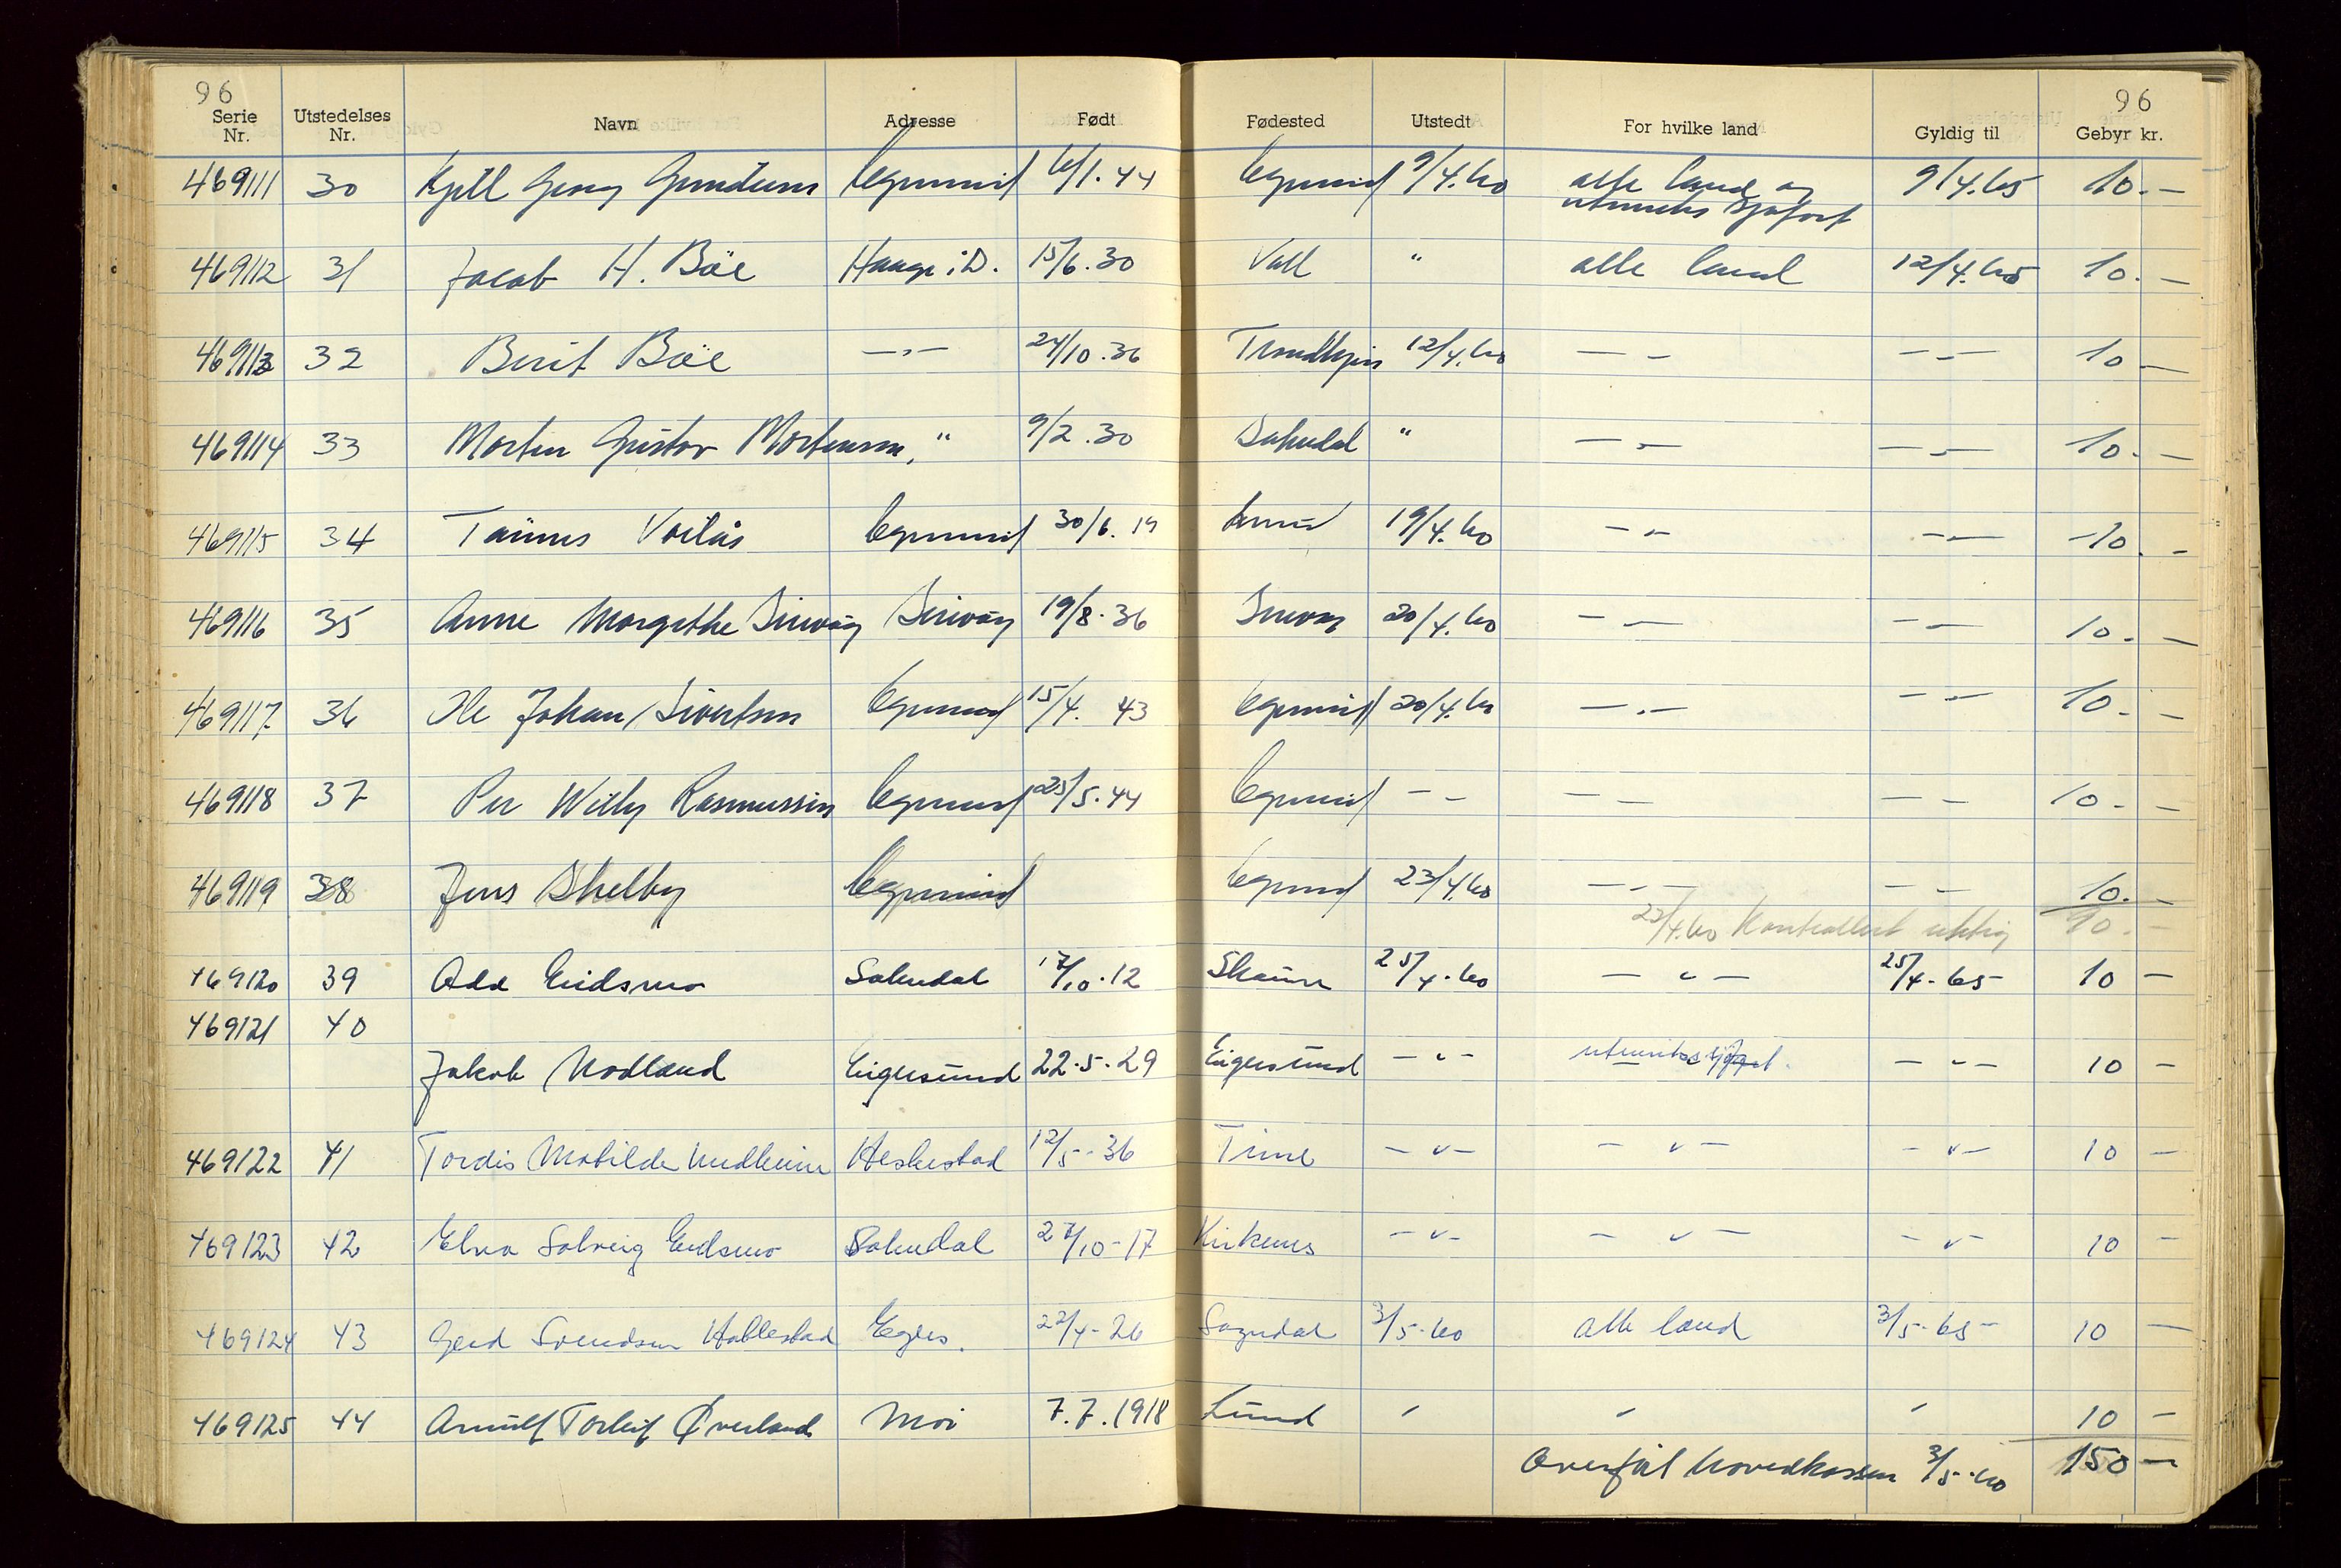 96 96
Serie Nr. Utstedelses Nr. Navn Adresse Født Fødested Utstedt For hvilke land Gyldig til Gebyr kr.
469111 30 Kjell Georg Egersund 6/1.44 Egersund 9/4.60 alle land og 9/4.65 10.-
utenriks sjøfart
469112 31 Jacob H. Böe Hauge i D. 15/6.30 " alle land 12/4.65 10.-
469113 32 Berit Böe -"- 24/10.36 Trondhjem 12/4.60 - - - - 10 -
469114 33 Morten Gustav Mortensen, " 9/2.30 Sokndal " -"- -"- 10.-
469115 34 Egersund 30/6.19 Lund 19/4.60 -"- - - 10.-
469116 35 Anne Margethe Sirevåg Sirevåg 19/8.36 Sirevåg 20/4.60 - - - - 10.-
469117 36 Ole Johan Sivertsen Egersund 15/4.43 Egersund 20/4.60 -"- - - 10.-
469118 37 Per Willy Rasmussen Egersund 25/5.44 Egersund - - - - - - 10.-
469119 38 Jens Skelby Egersund Egersund 23/4.60 -"- - - 10.-
23/4.60 Kontrollert riktig 90.-
469120 39 Odd Eidsmo Sokndal 17/10.12 25/4.60 -"- 25/4-65 10 -
469121 40
Jakob Modland Eigersund 22.5.29 Eigersund -"- utenriks sjöfart. -"- 10 -
469122 41 Tordis Matilde Heskestad 12/5-36 Time -"- -"- -"- 10 -
469123 42 Elna Solveig Eidsmo Sokndal 27/10-17 Kirkenes -"- -"- -"- 10 -
469124 43 Gerd Svendsen Hallestad Egers. 22/4-26 Sogndal 3/5-60 alle land 3/5-65 10 -
469125 44 Arnulf Torleif Øverland Moi 7.7.1918 Lund " " " 10 -
Overført hovedkassen 3/5-60 150 -